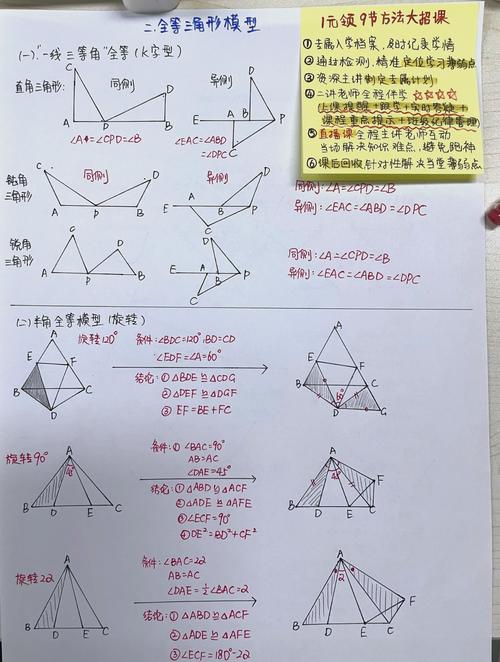 二.全等三角形模型
(一)"一线三等角"全等(K字型)
直角三角形: 同侧 异侧
C D A P B
∠A=∠CPD=∠B
D E A B P C
∠EAC=∠ABD
=∠DPC
钝角
三角形
同侧 异侧
C D A P B
E A B P C D
同侧:∠A=∠CPD=∠B
异侧:∠EAC=∠ABD=∠DPC
锐角
三角形
C D A P B
D E A B P C
同侧:∠A=∠CPD=∠B
异侧:∠EAC=∠ABD=∠DPC
1元领9节方法大招课
①专属入学档案,及时记录学情
②通过检测,精准定位学习薄弱点
③资深主讲制定专属计划
④二讲老师全程伴学☆☆☆☆
(上课提醒+跟学+实时答疑+
课程重点提示+班级纪律管理)
⑤直播课全程主讲老师互动
当场解决知识难点,避免跑神
⑥课后回收,针对性解决当堂薄弱点
(二)半角全等模型(旋转)
旋转120°
A E F B C D
条件:∠BDC=120°,BD=CD
∠EDF=∠A=60°
结论:①△BDE≌△CDG
②△DEF≌△DGF
③EF=BE+FC
A E F B C D G 60°
旋转90°
A B D E C 45°
条件:①∠BAC=90°
AB=AC
∠DAE=45°
结论:①△ABD≌△ACF
②△ADE≌△AFE
③∠ECF=90°
④DE²=BD²+CF²
A B D E C F 45°
旋转2α
A B D E C
条件:∠BAC=2α
AB=AC
∠DAE=½∠BAC=α
结论:①△ABD≌△ACF
②△ADE≌△AFE
③∠ECF=180°-2α
A B D E C F